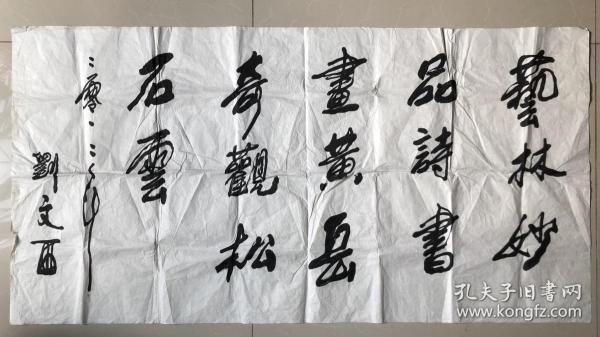 藝林妙
品詩書
畫黃岳
奇觀松
石雲
二零一二年
劉文西
孔夫子旧書网
www.kongfz.com